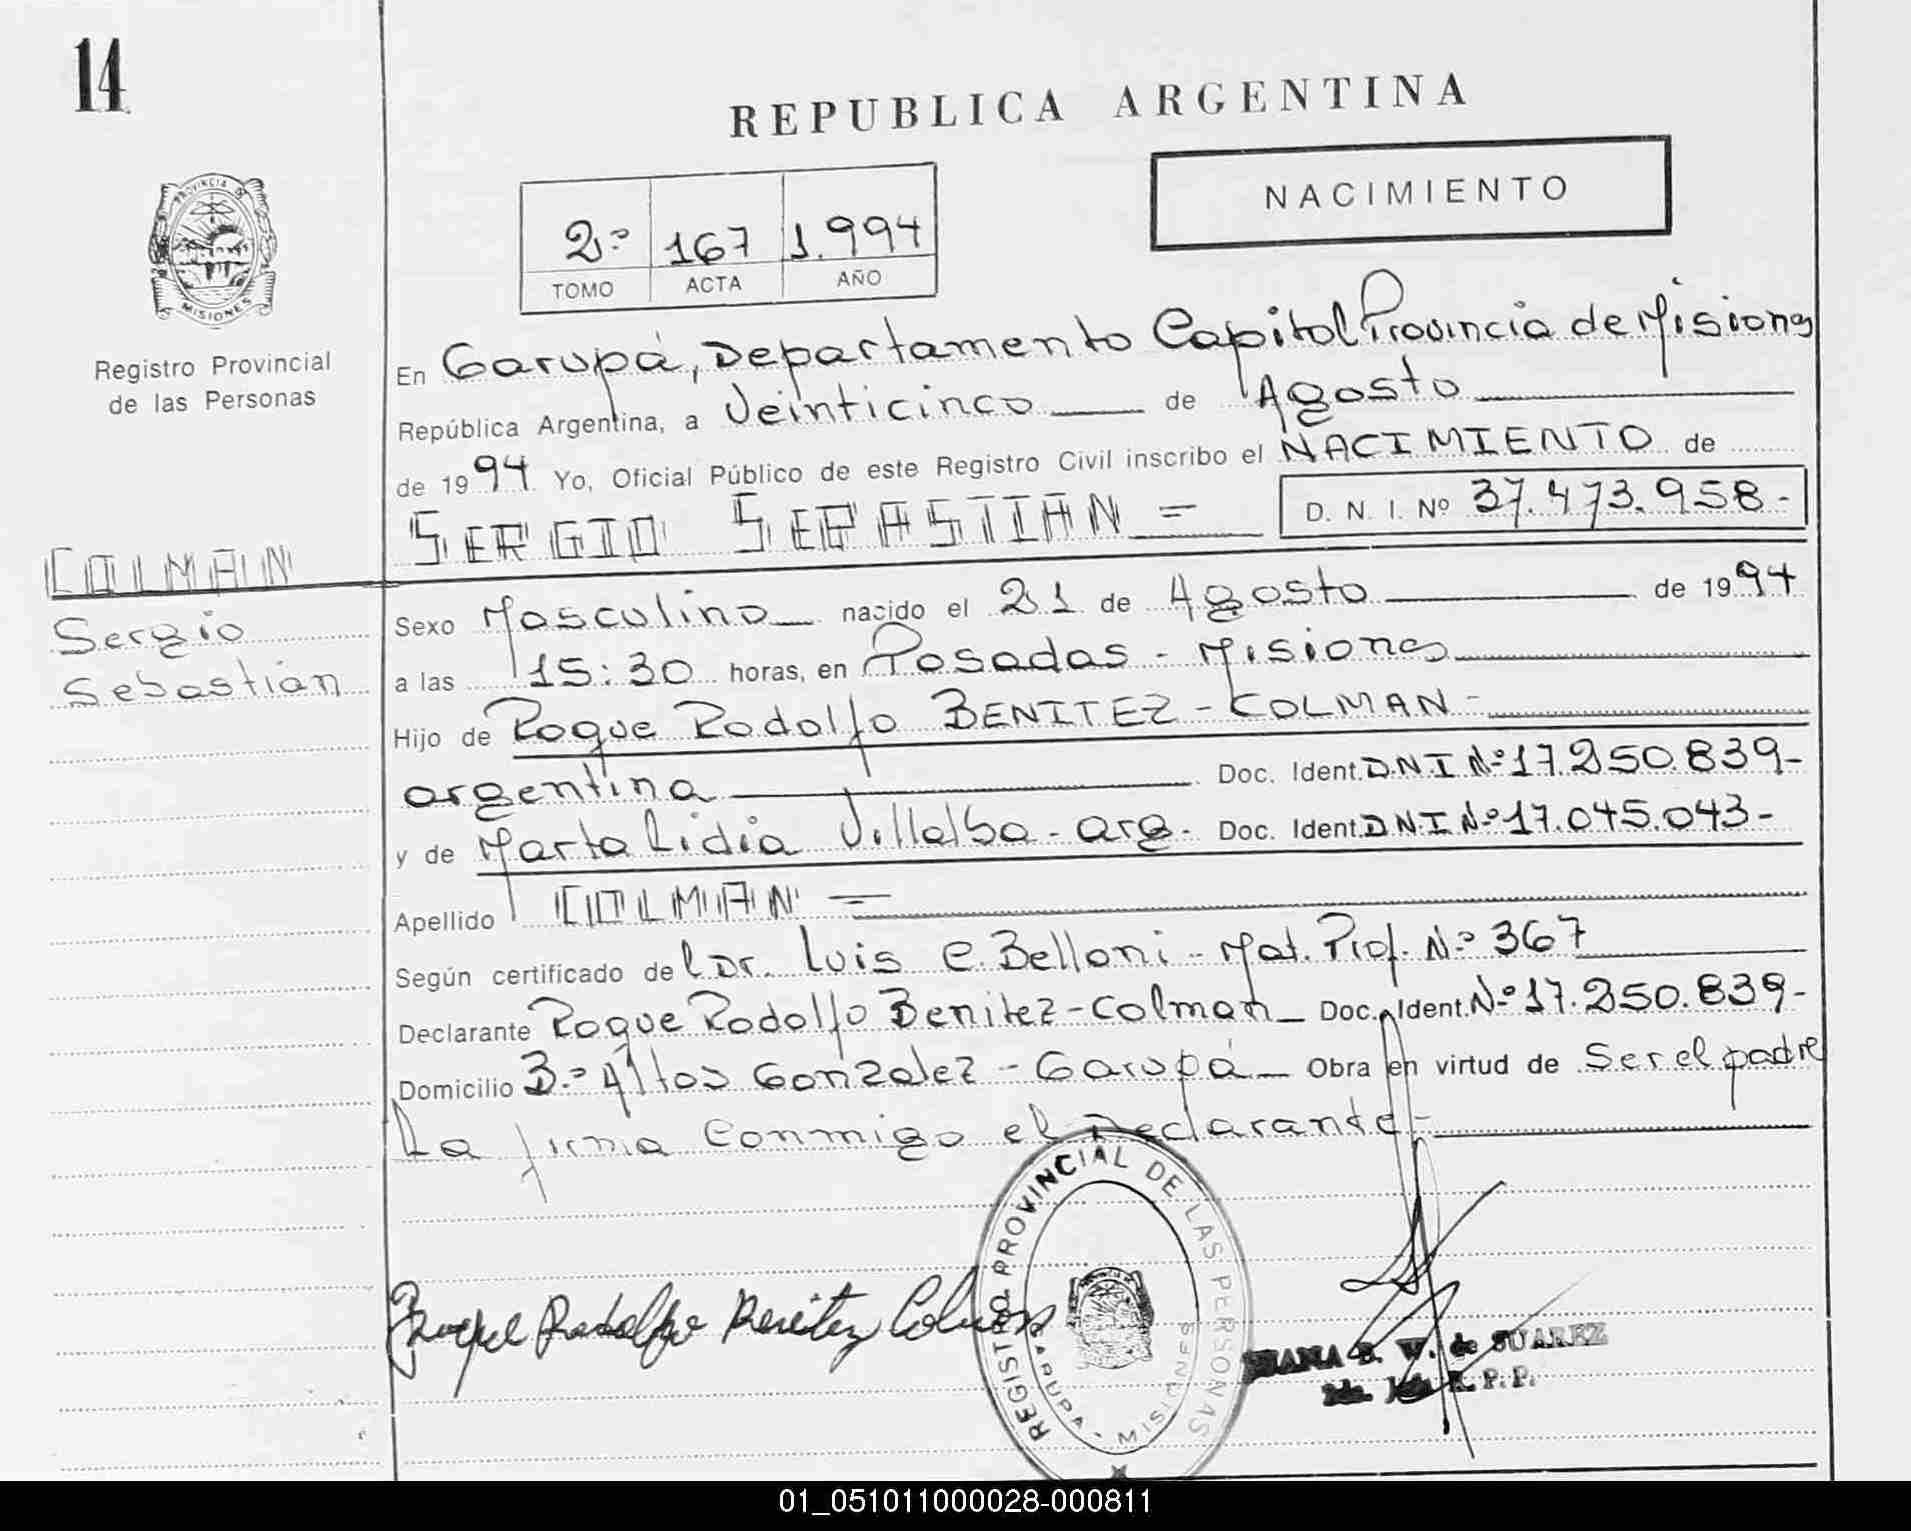 14
REPUBLICA ARGENTINA
NACIMIENTO
2º 167 1.994
TOMO ACTA AÑO
PROVINCIA DE
MISIONES
Registro Provincial
de las Personas
En Garupá, Departamento Capital Provincia de Misiones
República Argentina, a Veinticinco de Agosto
de 1994 Yo, Oficial Público de este Registro Civil inscribo el NACIMIENTO de
SERGIO SEBASTIAN = D. N. I. Nº 37.473.958-
COLMAN
Sergio
Sebastián
Sexo Masculino nacido el 21 de Agosto de 1994
a las 15:30 horas, en Posadas - Misiones
Hijo de Roque Rodolfo BENITEZ - COLMAN -
argentina Doc. Ident. D.N.I Nº 17.250.839-
y de Marta Lidia Villalba - arg - Doc. Ident. D.N.I Nº 17.045.043-
Apellido COLMAN =
Según certificado del Dr. Luis C. Belloni - Mat. Prof. Nº 367
Declarante Roque Rodolfo Benitez - Colman Doc. Ident. Nº 17.250.839-
Domicilio Bº Altos Gonzalez - Garupá Obra en virtud de Ser el padre
La firma conmigo el Declarante -
Roque Rodolfo Benitez Colman
REGISTRO PROVINCIAL DE LAS PERSONAS
GARUPA - MISIONES
B. W. de SUAREZ
R. P. P.
01_051011000028-000811